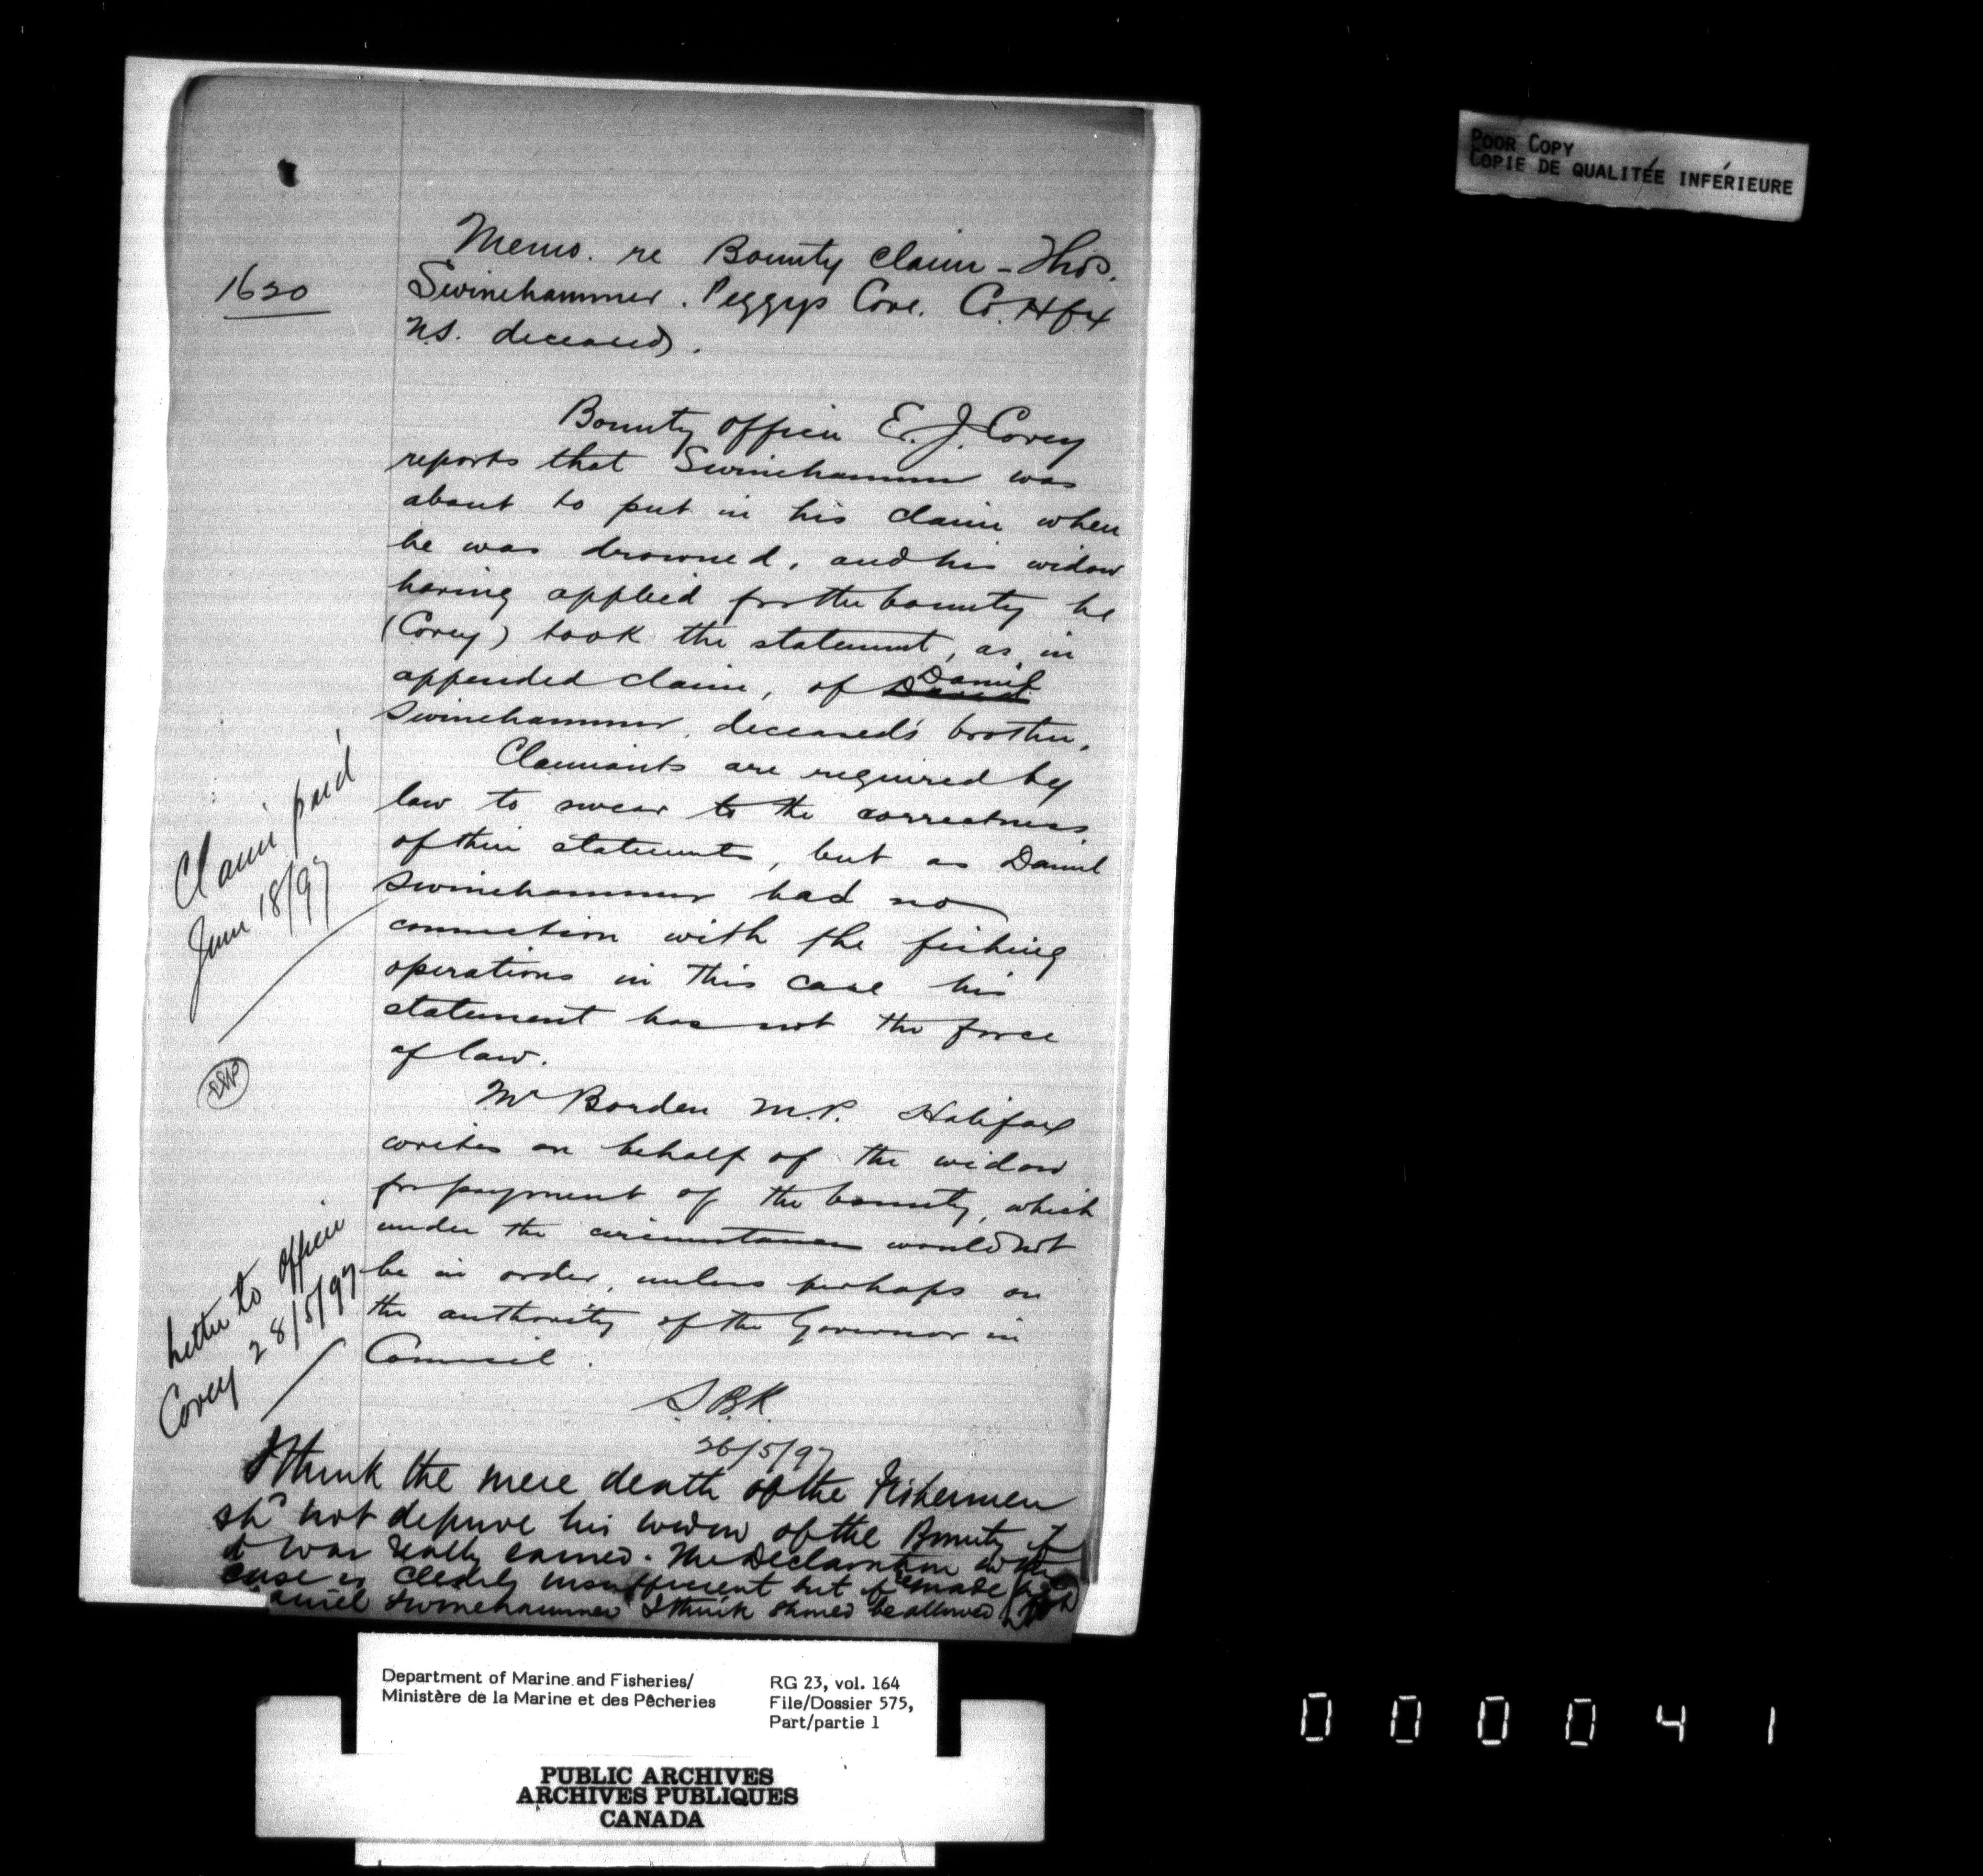 POOR COPY
COPIE DE QUALITÉE INFÉRIEURE
1620
Memo. re Bounty claim - Thos.
Swinehammer. Peggys Cove. Co. Hfx
N.S. deceased.
Bounty officer E. J. Covey
reports that Swinehammer was
about to put in his claim when
he was drowned, and his widow
having applied for the bounty he
(Covey) took the statement, as in
appended claim, of Daniel
Swinehammer, deceased's brother.
Claimants are required by
law to swear to the correctness
of their statements, but as Daniel
Swinehammer had no
connection with the fishing
operations in this case his
statement has not the force
of law.
Mr Borden M.P. Halifax
writes on behalf of the widow
for payment of the bounty, which
under the circumstances would not
be in order, unless perhaps on
the authority of the Governor in
Council.
S.B.K.
26/5/97
Claim paid
June 18/97
Letter to officer
Covey 28/5/97
I think the mere death of the Fishermen
shd not deprive his widow of the Bounty if
it was really earned. The Declaration in the
case is clearly insufficient but if made
Daniel Swinehammer I think should be allowed
Department of Marine and Fisheries/
Ministère de la Marine et des Pêcheries
RG 23, vol. 164
File/Dossier 575,
Part/partie 1
PUBLIC ARCHIVES
ARCHIVES PUBLIQUES
CANADA
000041